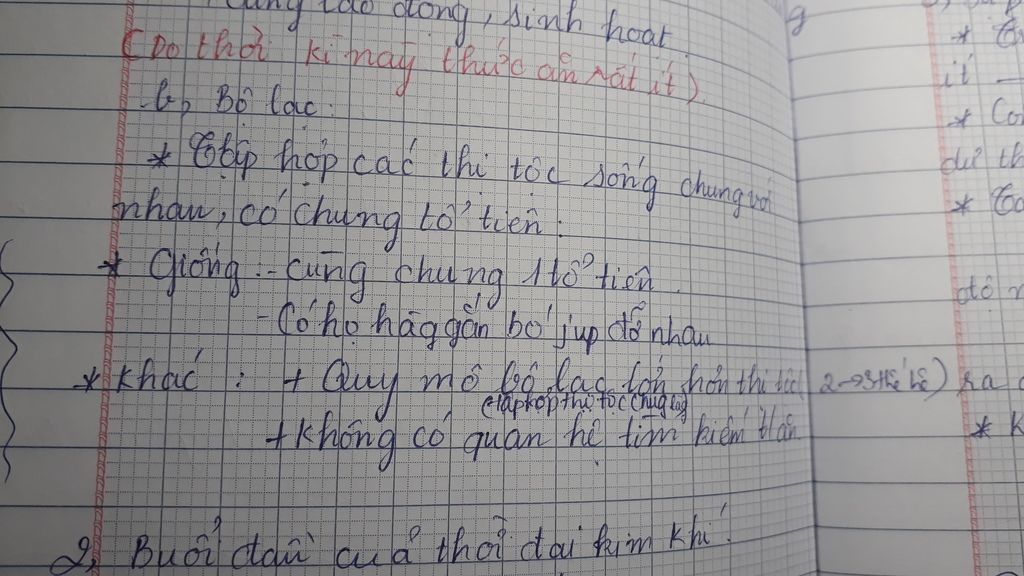 cùng lao động, sinh hoạt
(Do thời kì này thức ăn rất ít).
b, Bộ lạc:
* Tập hợp các thị tộc sống chung với
nhau, có chung tổ tiên.
* Giống: - cùng chung 1 tổ tiên.
- Có họ hàg gắn bó júp đỡ nhau
* Khác: + Quy mô bộ lạc lớn hơn thị tộc (2→3 thế hệ)
+ Không có quan hệ tìm kiếm t/ăn
2, Buổi đầu của thời đại kim khí.